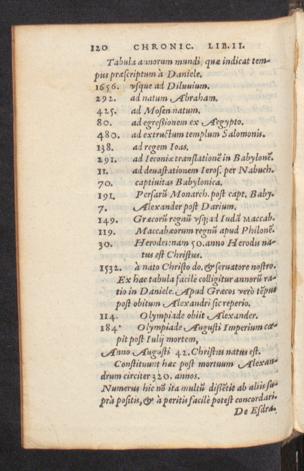 120 CHRONIC. LIB. II.
Tabula annorum mundi, quæ indicat tem-
pus præscriptum à Daniele.
1656. vsque ad Diluuium.
292. ad natum Abraham.
425. ad Mosen natum.
80. ad egressionem ex Aegypto.
480. ad extructum templum Salomonis.
138. ad regem Ioas.
291. ad Ieconiæ translationē in Babylonē.
11. ad deuastationem Ieros. per Nabuch.
70. captiuitas Babylonica.
191. Persarū Monarch. post capt. Baby.
7. Alexander post Darium.
149. Græcorū regnū vsq; ad Iudā Maccab.
119. Maccabæorum regnū apud Philonē.
30. Herodes: nam 30. anno Herodis na-
tus est Christus.
1532. à nato Christo do. & seruatore nostro.
Ex hac tabula facile colligitur annorū ra-
tio in Daniele. Apud Græcos verò tēpus
post obitum Alexandri sic reperio.
114. Olympiade obiit Alexander.
184. Olympiade Augusti Imperium cœ-
pit post Iulij mortem,
Anno Augusti 42. Christus natus est.
Constituunt hac post mortuum Alexan-
drum circiter 320. annos.
Numerus hic nō ita multū distētit ab aliis su-
prà positis, & à peritis facilè potest concordari.
De Esdra.